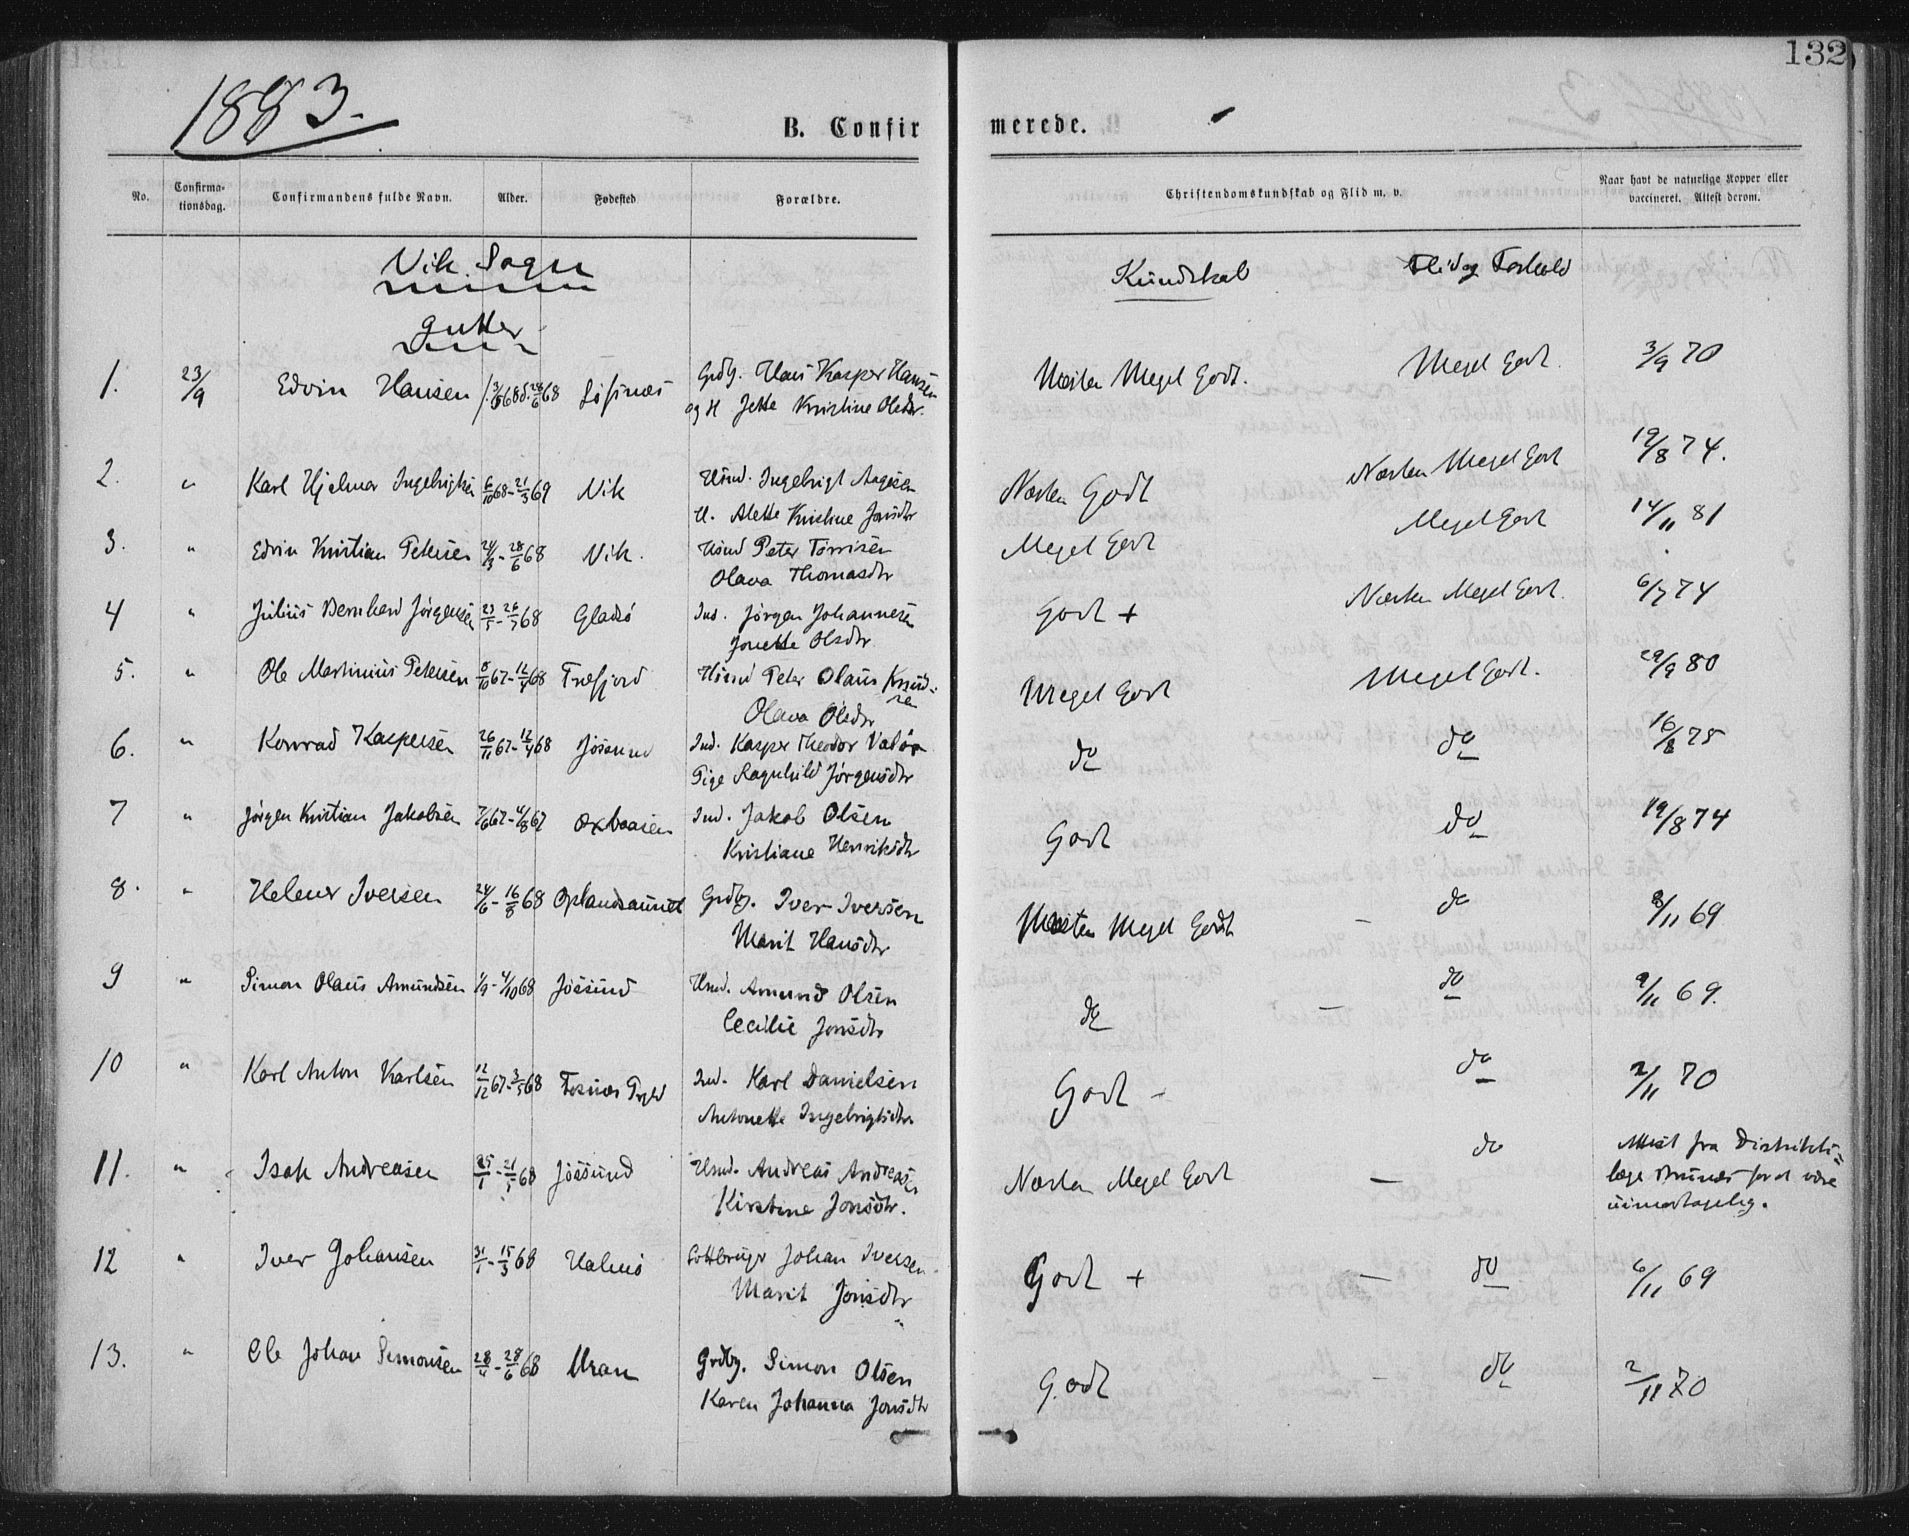 132
1883.
B. Confirmerede.
No. Confirmationsdag. Confirmandens fulde Navn. Alder. Fødested Forældre. Christendomskundskab og Flid m. v. Naar havt de naturlige Kopper eller vaccineret. Attest derom.
Vik Sogn Kundskab Flid og Forhold
Gutter
1. 23/9 Edvin Hansen Grdbr. Hans Kasper Hansen Næsten Meget Godt. Meget Godt. 3/9 70
og H Jette Kristine Olsdtr.
2. " Karl Hjelmar Ingebrigtsen 6/10 68 - 21/3 69 Vik Ingebrigt Aagesen Næsten Godt Næsten Meget Godt 19/8 74.
H. Alette Kristine Jonsdtr
3. " Edvin Kristian Petersen 24/3 - 28/6 68 Vik. Husmd Peter Tørrisen Meget Godt Meget Godt 14/11 81
Olava Thomasdtr
4 " Julius Bernhard Jørgensen Gladsø Ind. Jørgen Johannesen Godt + Næsten Meget Godt. 6/7 74
Jonette Olsdtr
5. " Ole Martinius Petersen 8/10 67 - 12/4 68 Husmd Peter Olaus Knudsen Meget Godt Meget Godt. 29/9 80
Olava Olsdtr
6. " Konrad Kaspersen 26/11 67 - 12/4 68 Jøssund Ind. Kasper Theodor Valør do do 16/8 75
Pige Ragnhild Jørgensdtr
7 " Jørgen Kristian Jakobsen 7/6 67 - 4/8 67 Oxbaasen Ind. Jakob Olsen Godt do 19/8 74
Kristiane Henriksdtr
8. " Helmer Iversen 24/6 - 16/8 68 Oplandsaunet Grdbr. Iver Iversen Næsten Meget Godt - do 8/11 69
Marit Hansdtr
9 " Simon Olaus Amundsen 1/9 - 4/10 68 Jøssund Husmd. Amund Olsen do - do 9/11 69.
Cecilie Jonsdtr
10 " Karl Anton Karlsen 12/12 67 - 3/5 68 Fosnes Prgld Ind. Karl Danielsen Godt - do 2/11 70
Antonette Ingebrigtsdtr
11. " Isak Andreasen Jøssund Husmd. Andreas Andreasen Næsten Meget Godt - do Attest fra Distrikts=
Kirstine Jonsdtr. læge for at være
uimodtagelig.
12 " Iver Johansen 31/1 - 15/3 68 Johan Iversen Godt + - do 6/11 69
Marit Jonsdtr
13. " Ole Johan Simonsen 28/4 - 28/6 68 Uran Grdbr. Simon Olsen Godt - do 2/11 70
Karen Johanna Jonsdtr